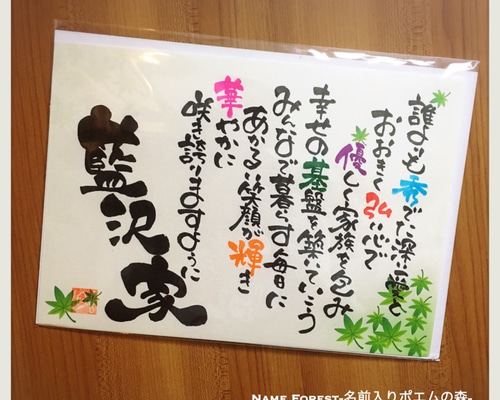 誰よりも秀でた深い愛と
おおきく弘い心で
優しく家族を包み
幸せの基盤を築いていこう
みんなで暮らす毎日に
あかるい笑顔が輝き
華やかに
咲き誇りますように
藍沢家
NAME FOREST-名前入りポエムの森-